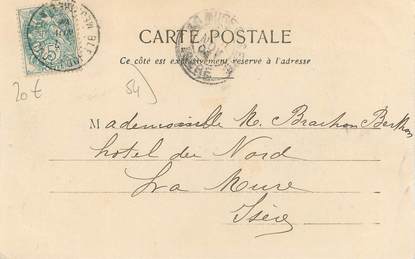 CARTE POSTALE
Ce côté est exclusivement réservé à l'adresse
20 €
54
Mademoiselle M. Brachon
hotel du Nord
La Mure
Isère